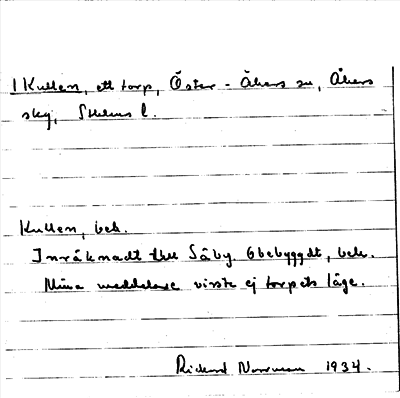 1 Kullen, ett torp, Öster-Åkers sn, Åkers
skg, Sthlms l.
Kullen, beb.
Inräknadt till Säby. Obebyggdt, beb.
Mina meddelare visste ej torpets läge.
Rickard Norrman 1934.